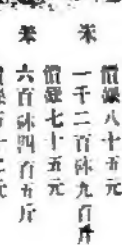 價銀八十五元
米 一千二百砵九百斤
價銀七十五元
米 六百砵四百五斤